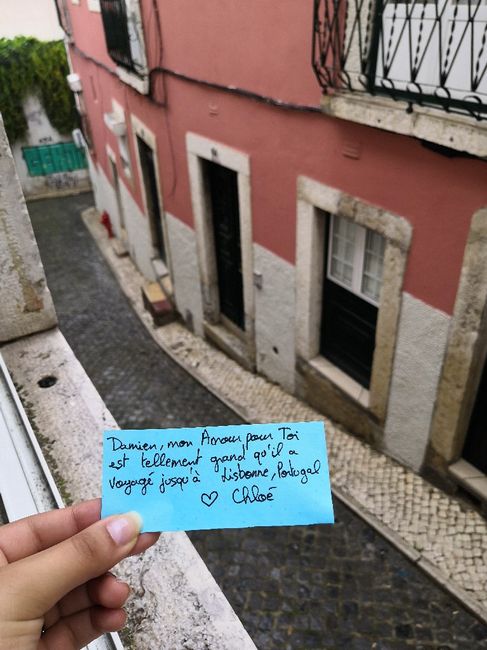 Damien, mon Amour pour Toi
est tellement grand qu'il a
voyagé jusqu'à Lisbonne, Portugal
♡ Chloé